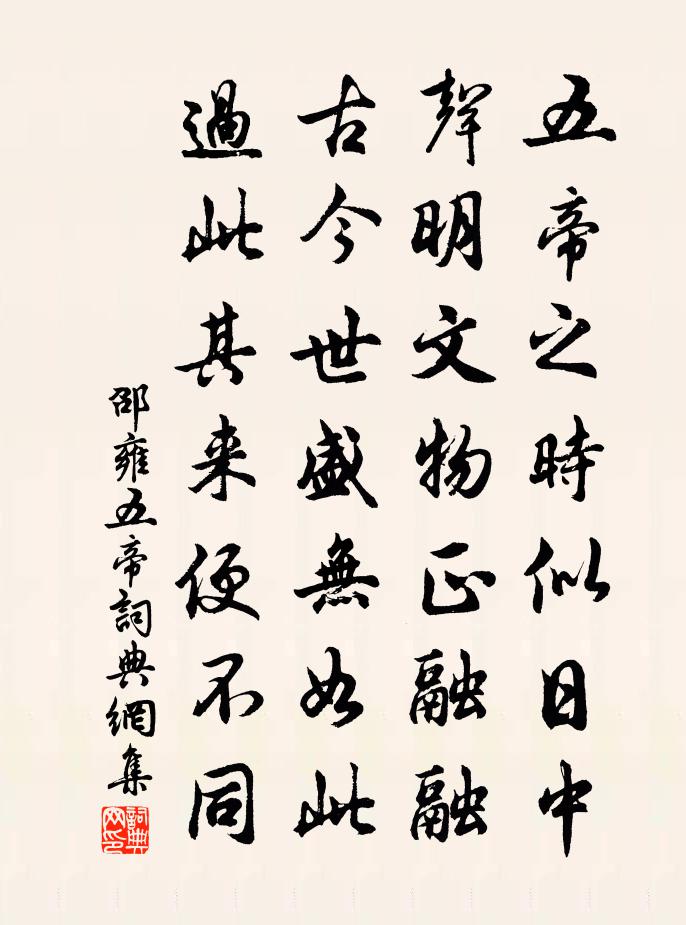 五帝之時似日中
聲明文物正融融
古今世盛無如此
過此其来便不同
邵雍五帝詞典網集
詞典网印